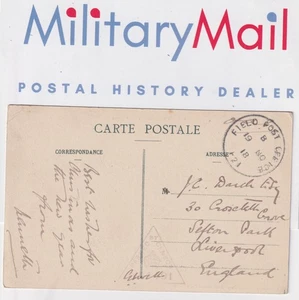 MilitaryMail
POSTAL HISTORY DEALER
CARTE POSTALE
CORRESPONDANCE
ADRESSE
FIELD POST OFFICE
Best wishes for
Xmas and
the New Year
from
J.C. Esq
30
Grove
Sefton Park
Liverpool
England